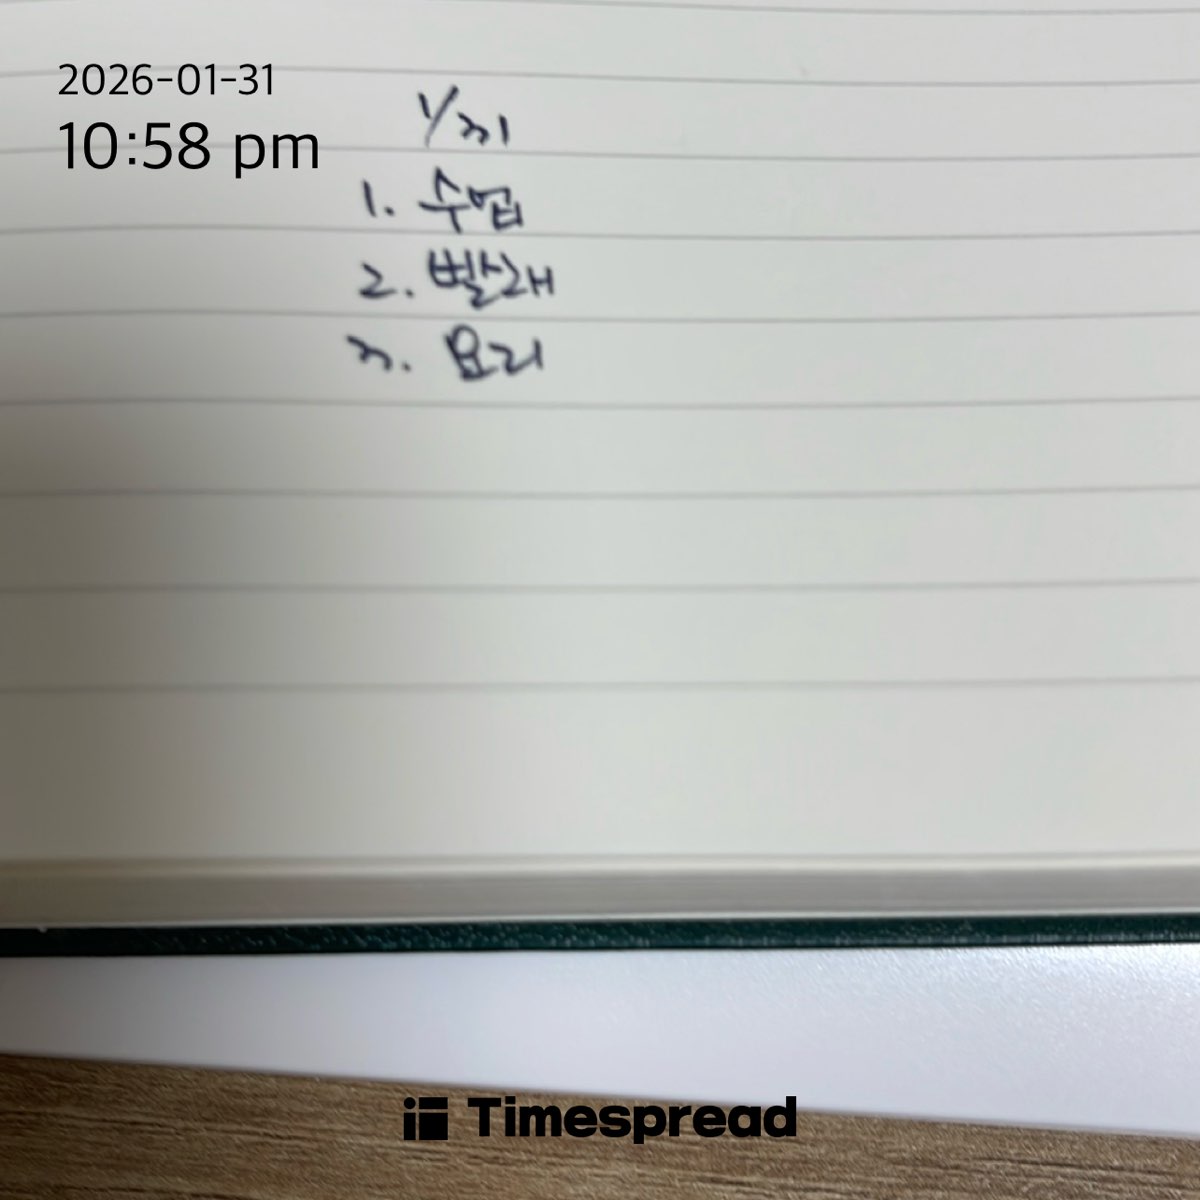 2026-01-31
10:58 pm
1/31
1. 수업
2. 빨래
3. 요리
Timespread